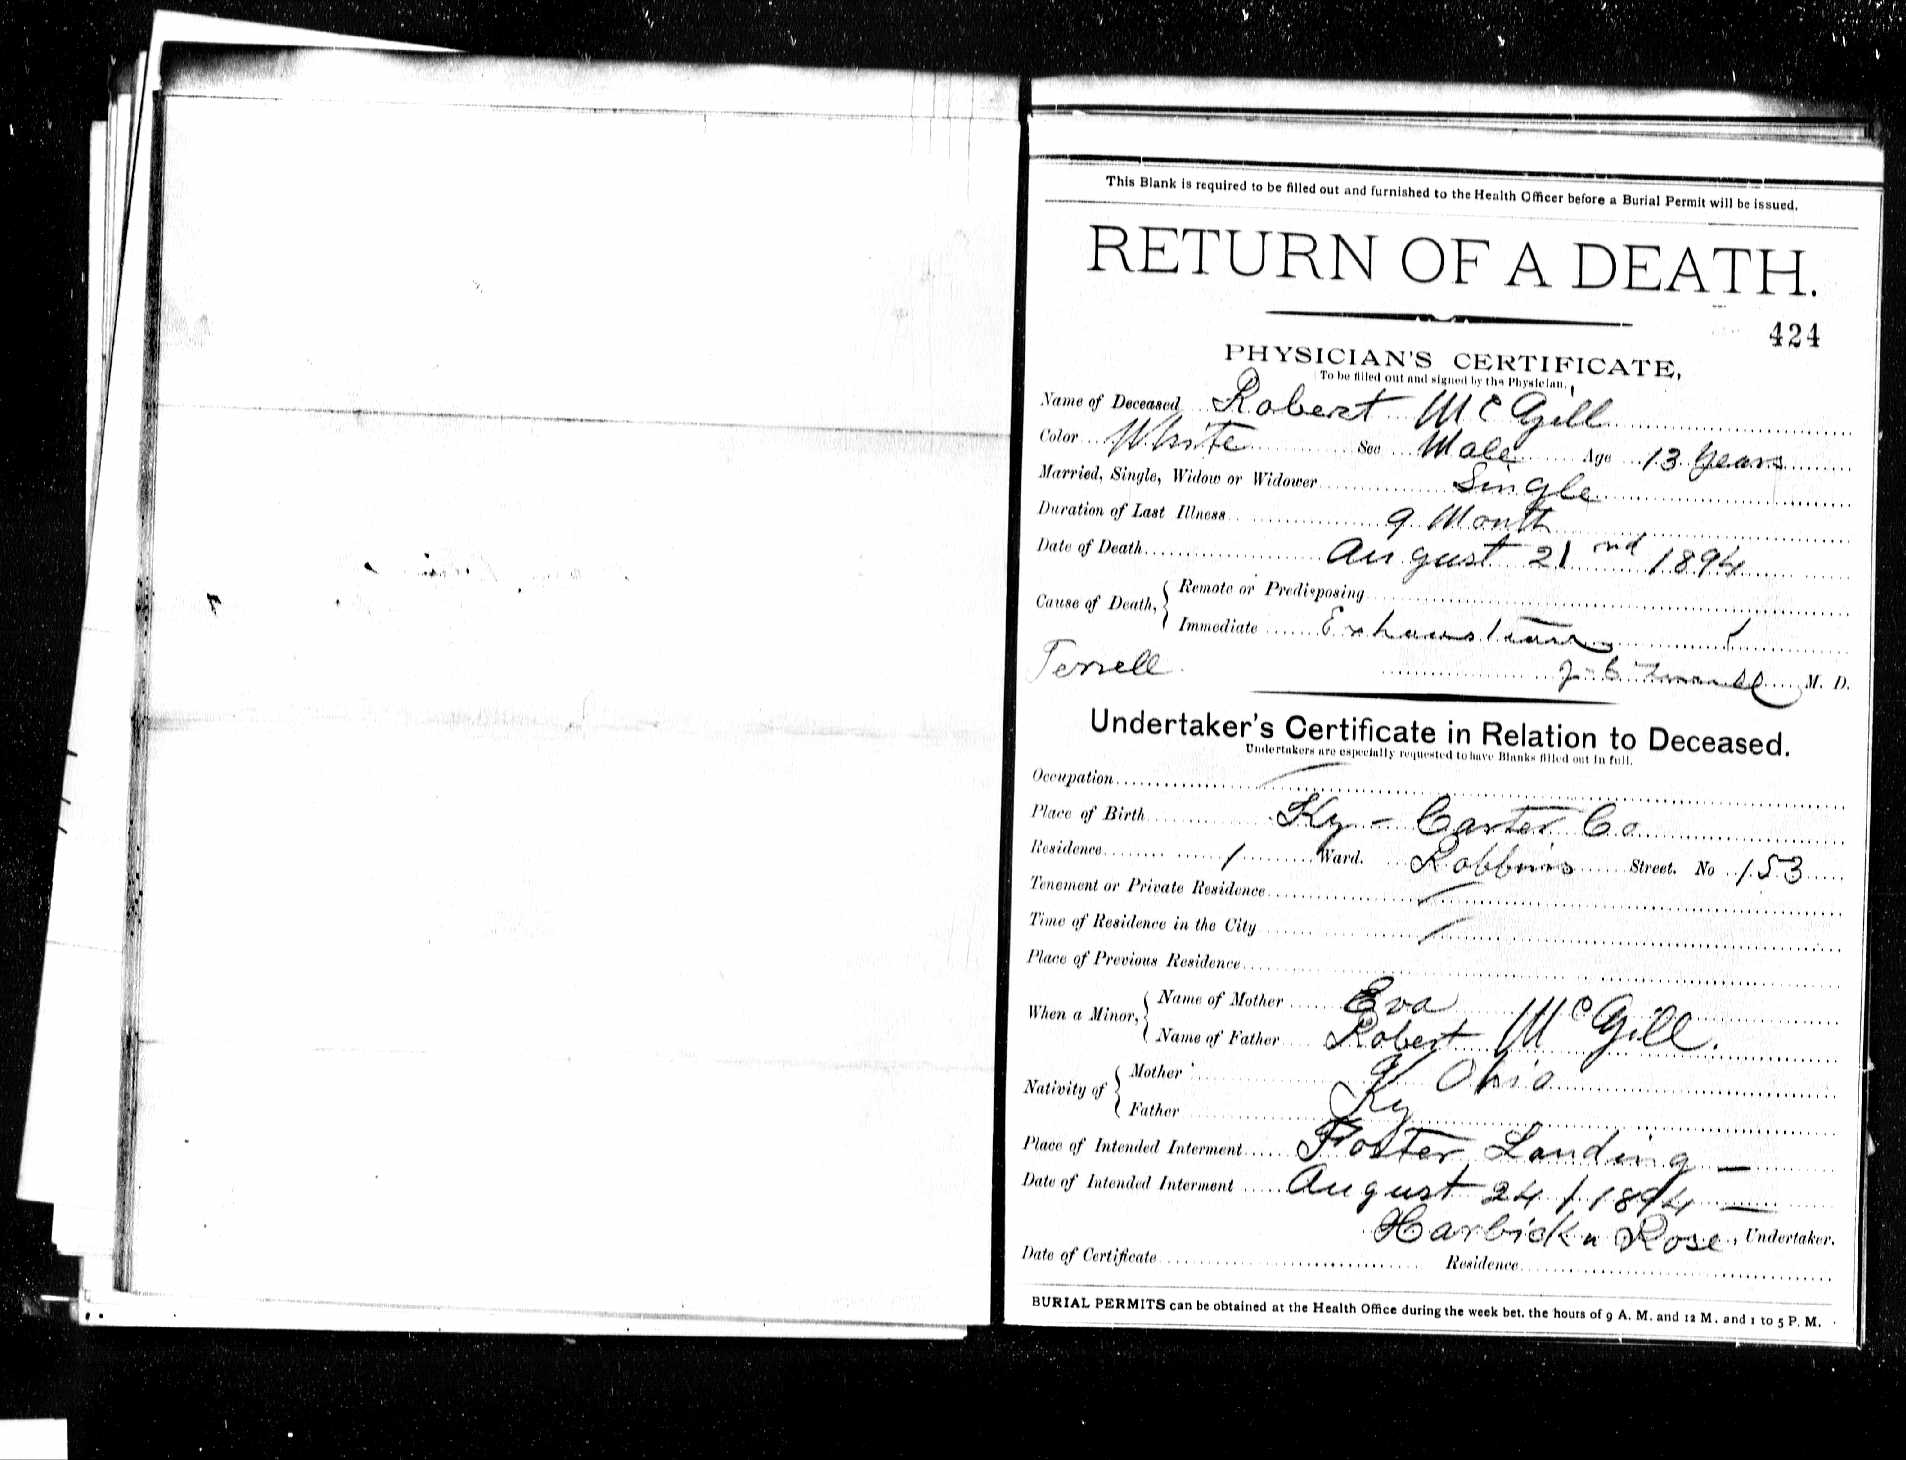 This Blank is required to be filled out and furnished to the Health Officer before a Burial Permit will be issued.
RETURN OF A DEATH.
424
PHYSICIAN'S CERTIFICATE,
To be filled out and signed by the Physician.
Name of Deceased Robert McGill
Color White Sec Male Age 13 Years
Married, Single, Widow or Widower Single
Duration of Last Illness 9 Month
Date of Death August 21 nd 1894
Cause of Death, Remote or Predisposing
Immediate Exhaustion
Terrell J M. D.
Undertaker's Certificate in Relation to Deceased.
Undertakers are especially requested to have Blanks filled out in full.
Occupation
Place of Birth Ky - Carter Co
Residence 1 Ward. Robbins Street. No 153
Tenement or Private Residence
Time of Residence in the City
Place of Previous Residence
When a Minor, Name of Mother Eva
Name of Father Robert McGill.
Nativity of Mother Ohio
Father Ky
Place of Intended Interment Foster Landing —
Date of Intended Interment August 24 / 1894 —
Rose, Undertaker.
Date of Certificate Residence
BURIAL PERMITS can be obtained at the Health Office during the week bet. the hours of 9 A. M. and 12 M. and 1 to 5 P. M.